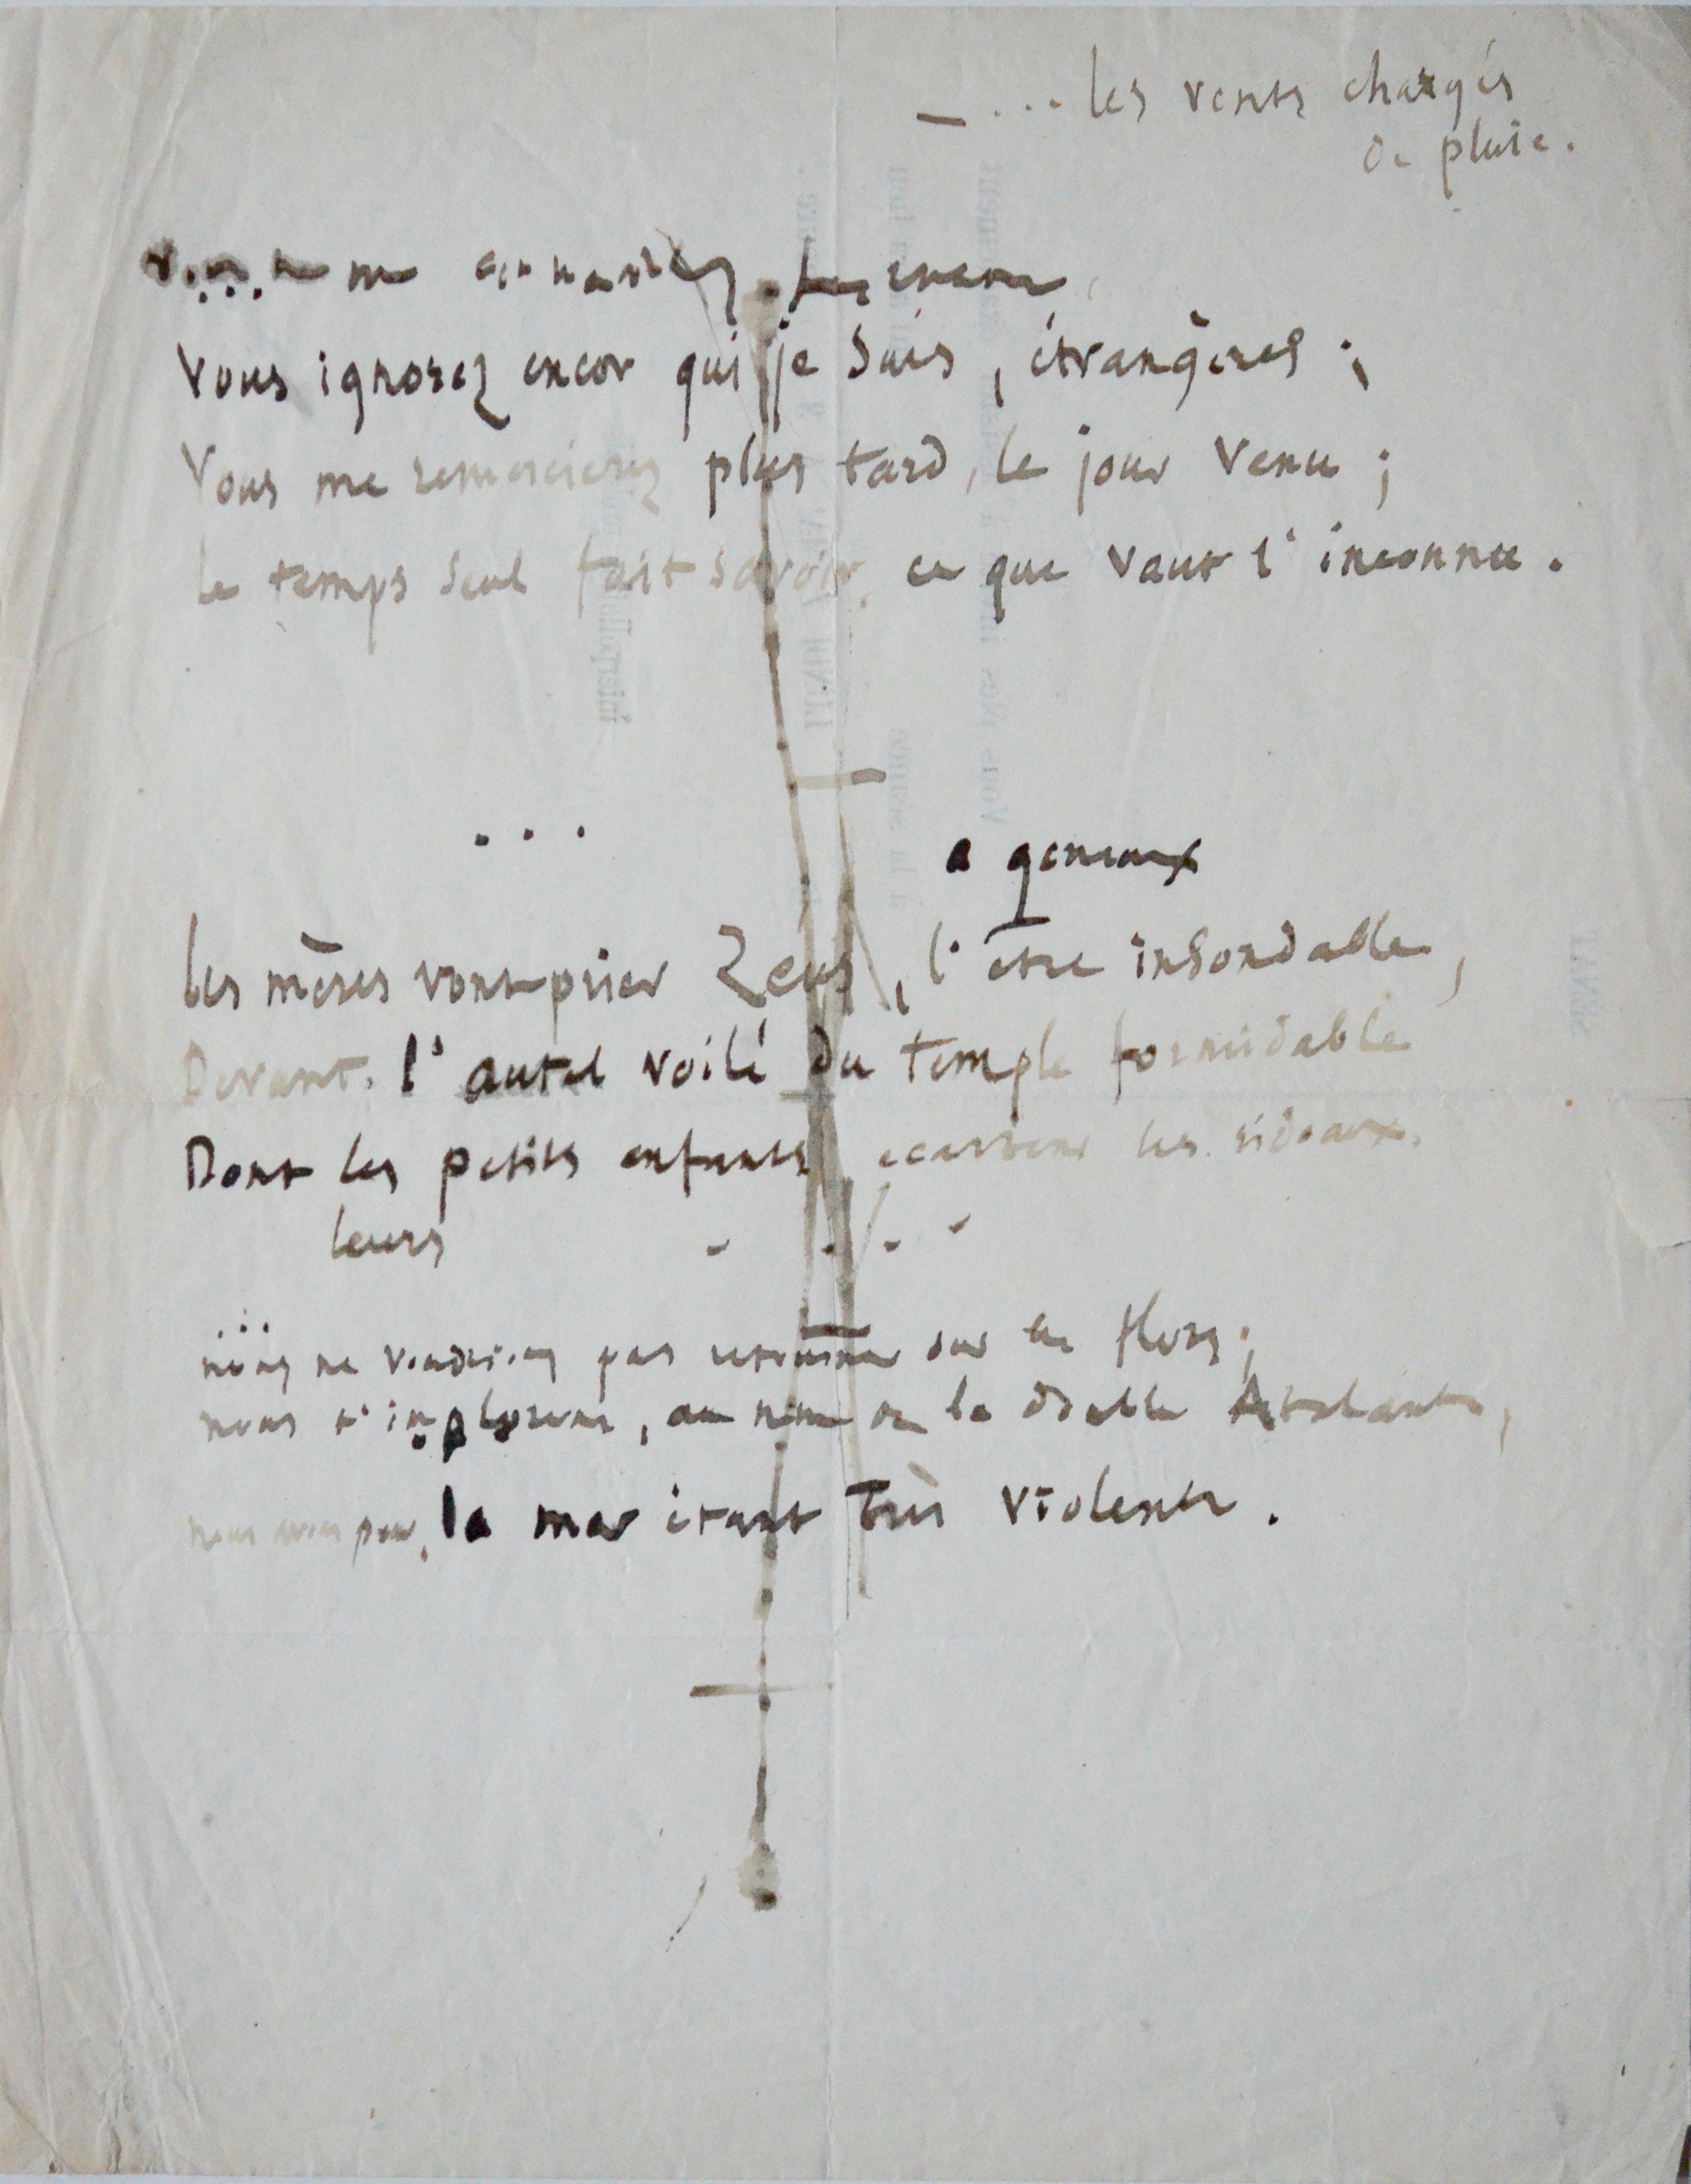 — . . . les vents chargés
de pluie.
Vous ne me connaissez pas encore,
Vous ignorez encor qui je suis, étrangères ;
Vous me remercierez plus tard, le jour venu ;
le temps seul fait savoir ce que vaut l'inconnu.
. . .
a genoux
les mères vont prier Zeus, l'être insondable,
Devant l'autel voilé du temple formidable
Dont les petits enfants écartent les rideaux.
leurs - - - -
...
nous ne voudrions pas retourner sur les flots ;
nous t'implorons, au nom de la
nous avons peur, la mer étant très violente.